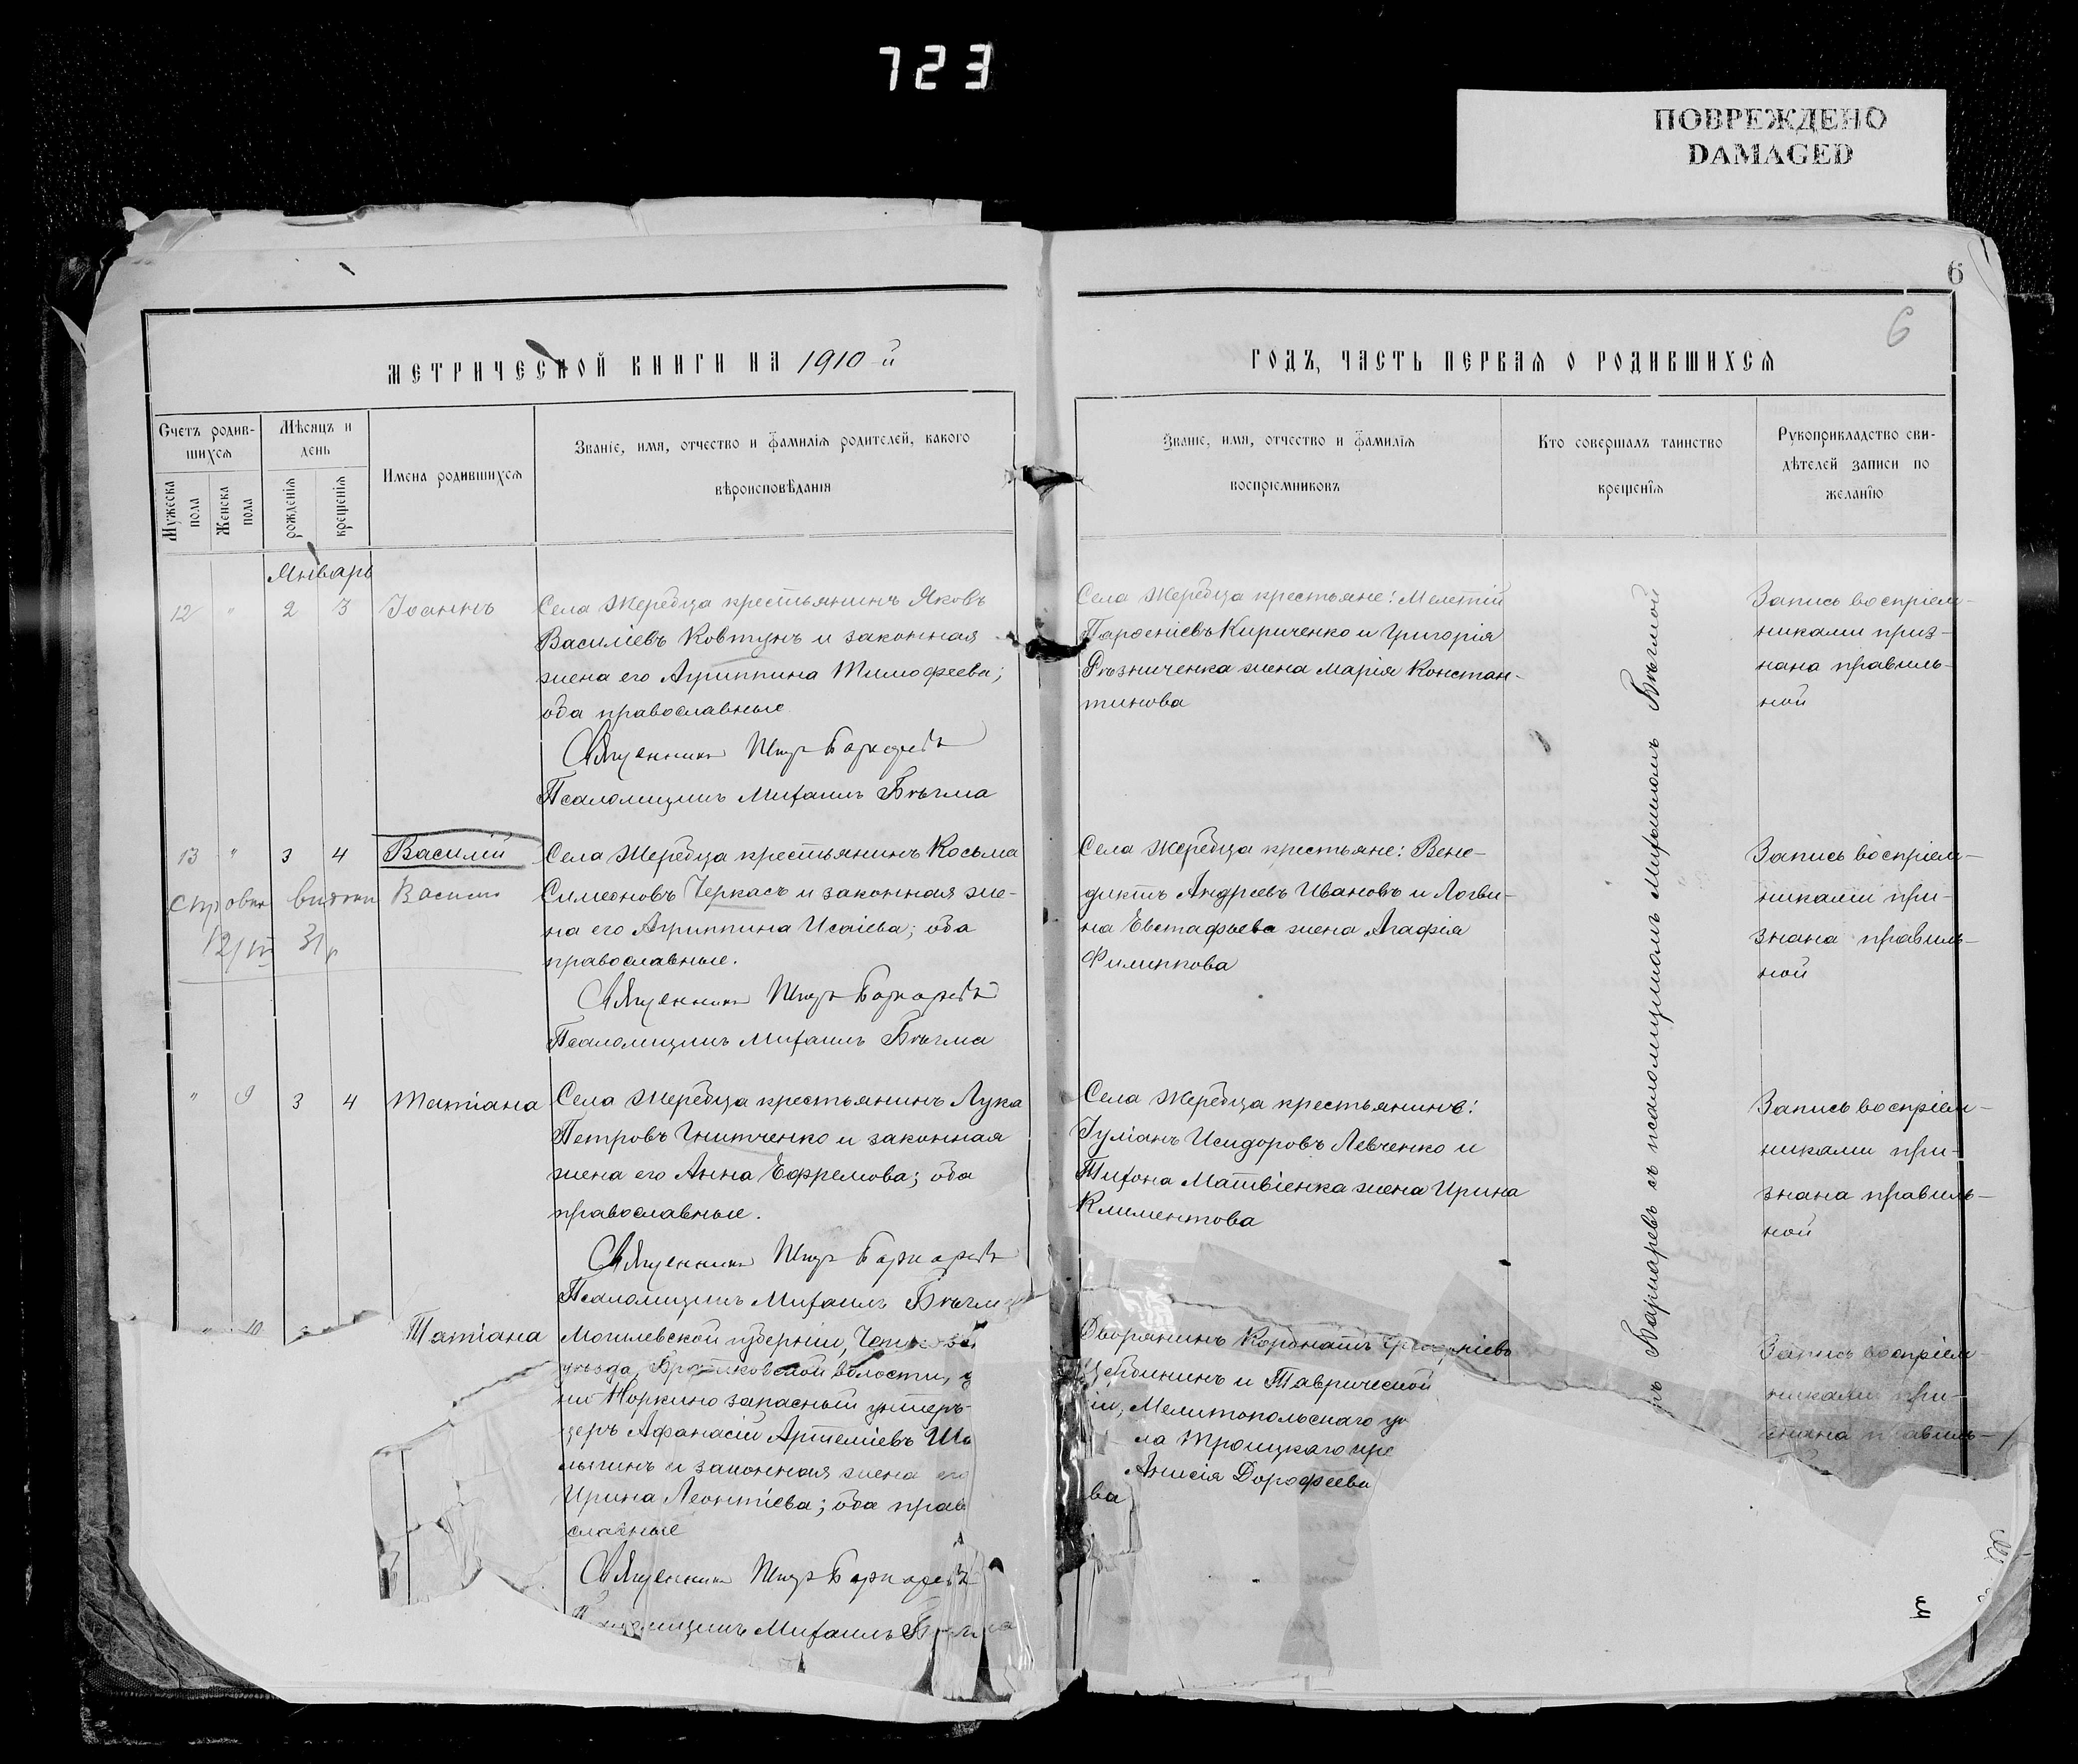 723
ПОВРЕЖДЕНО
DAMAGED
6
6
МЕТРИЧЕСКОЙ КНИГИ НА 1910-й
ГОДЪ, ЧАСТЬ ПЕРВАЯ О РОДИВШИХСЯ
Счетъ родив-
шихся
Мужеска
пола
Женска
пола
Мѣсяцъ и
день
рожденія
крещенія
Имена родившихся
Званіе, имя, отчество и фамилія родителей, какого
вѣроисповѣданія
Званіе, имя, отчество и фамилія
воспріемниковъ
Кто совершалъ таинство
крещенія
Рукоприкладство сви-
дѣтелей записи по
желанію
Январь
12 " 2 3 Іоаннъ
Села Жеребца крестьянинъ Яковъ
Василіевъ Ковтунъ и законная
жена его Агриппина Тимофеева;
оба православные
Священникъ
Псаломщикъ Михаилъ Бѣгма
Села Жеребца крестьяне: Мелетій
Парѳеніевъ Кириченко и Григорія
Рѣзниченка жена Марія Констан-
тинова
Запись воспріем-
никами приз-
нана правиль-
ной
13 " 3 4 Василій
Василь
12/VII 31р
Села Жеребца крестьянинъ Косьма
Симеоновъ Черкасъ и законная же-
на его Агриппина Исаіева; оба
православные.
Священникъ
Псаломщикъ Михаилъ Бѣгма
Села Жеребца крестьяне: Вене-
диктъ Андреевъ Ивановъ и Логви-
на Евстафьева жена Агафія
Филиппова
Запись воспріем-
никами при-
знана правиль-
ной
" 9 3 4 Татіана
Села Жеребца крестьянинъ Лука
Петровъ Гнитченко и законная
жена его Анна Ефремова; оба
православные.
Священникъ
Псаломщикъ Михаилъ Бѣгма
Села Жеребца крестьянинъ:
Іуліанъ Исидоровъ Левченко и
Тихона Матвіенка жена Ирина
Климентова
Запись воспріем-
никами при-
знана правиль-
ной
" 10 Татіана
Могилевской губерніи,
уѣзда, волости,
ни Норкино запасный унтеръ-
церъ Афанасій Артеміевъ
лыгинъ и законная жена его
Ирина Леонтіева; оба прав
славные
Священникъ
Псаломщикъ Михаилъ
Дворянинъ
и Таврической
іи, Мелитопольскаго у
ла Троицкаго кре
Анисія Дорофеева
ва
съ псаломщикомъ Михаиломъ Бѣгмой
Запись воспріем-
никами при-
знана правиль-